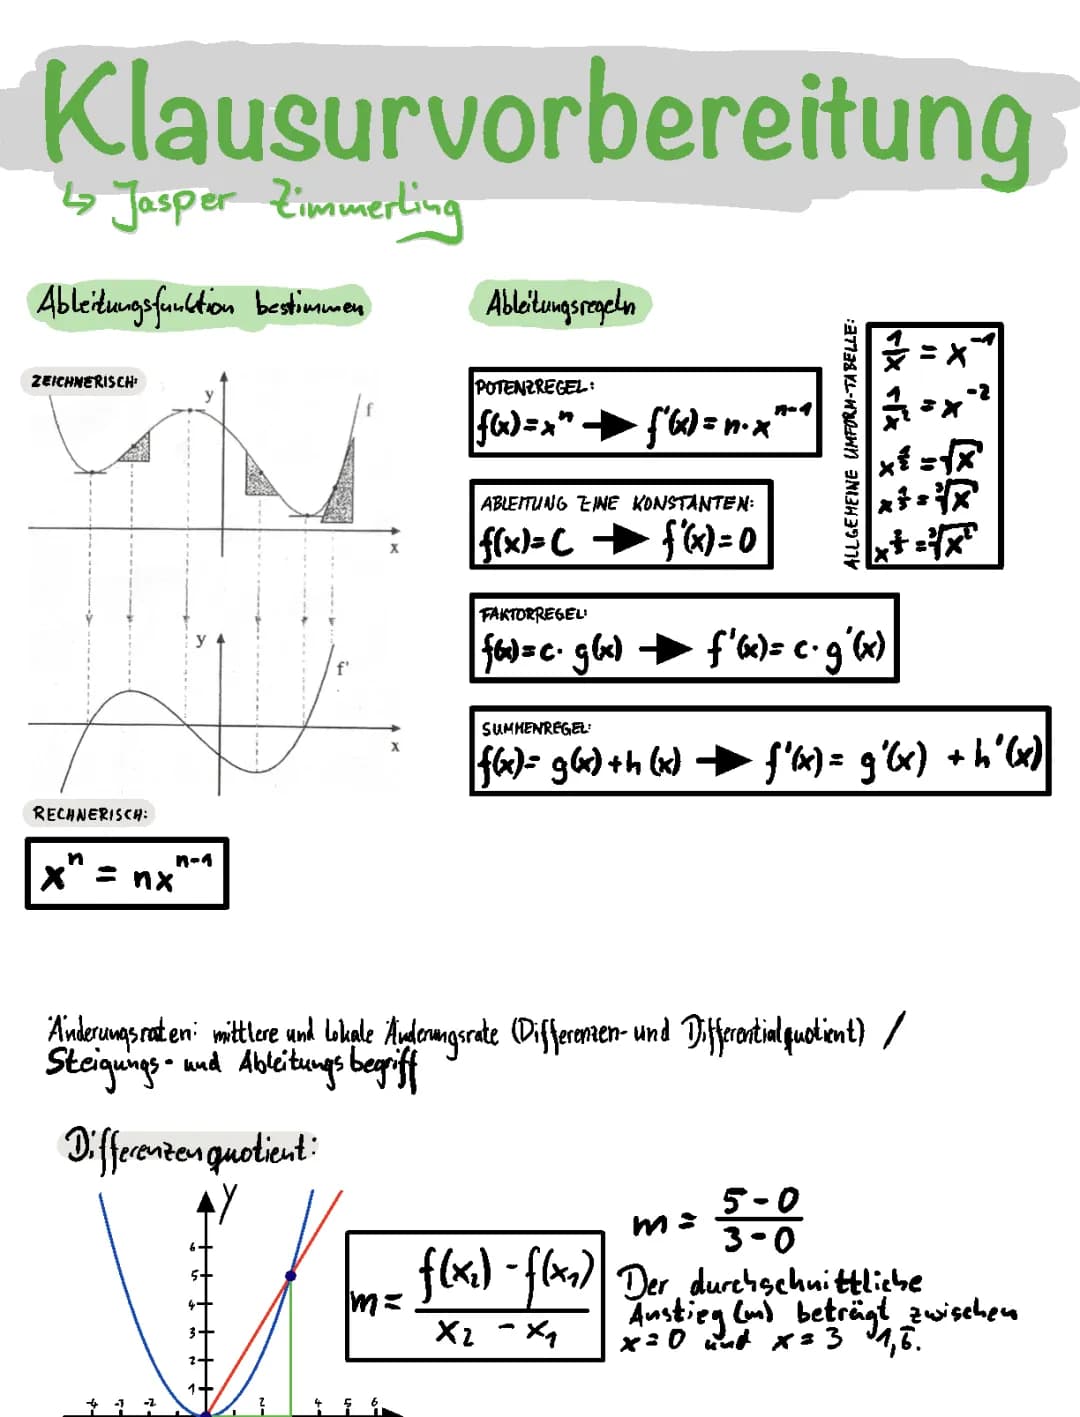 Klausurvorbereitung
↳ Jasper Zimmerling
Ableitungsfunktion bestimmen
ZEICHNERISCH:
y
f
x
y
f'
x
RECHNERISCH:
xⁿ = nxⁿ⁻¹
Ableitungsregeln
POTENZREGEL:
f(x)=xⁿ → f'(x)=n·xⁿ⁻¹
ABLEITUNG EINE KONSTANTEN:
f(x)=C → f'(x)=0
FAKTORREGEL:
f(x)=c·g(x) → f'(x)=c·g'(x)
SUMMENREGEL:
f(x)=g(x)+h(x) → f'(x)=g'(x)+h'(x)
ALLGEMEINE UMFORM-TABELLE:
1/x = x⁻¹
1/x² = x⁻²
=√x
=³√x
Änderungsraten: mittlere und lokale Änderungsrate (Differenzen- und Differentialquotient) /
Steigungs- und Ableitungsbegriff
Differenzenquotient:
y
6
5
4
3
2
1
-2
2
4
5
6
m = (f(x₂) - f(x₁)) / (x₂ - x₁)
m = (5-0) / (3-0)
Der durchschnittliche
Anstieg (m) beträgt zwischen
x=0 und x=3 1,6.